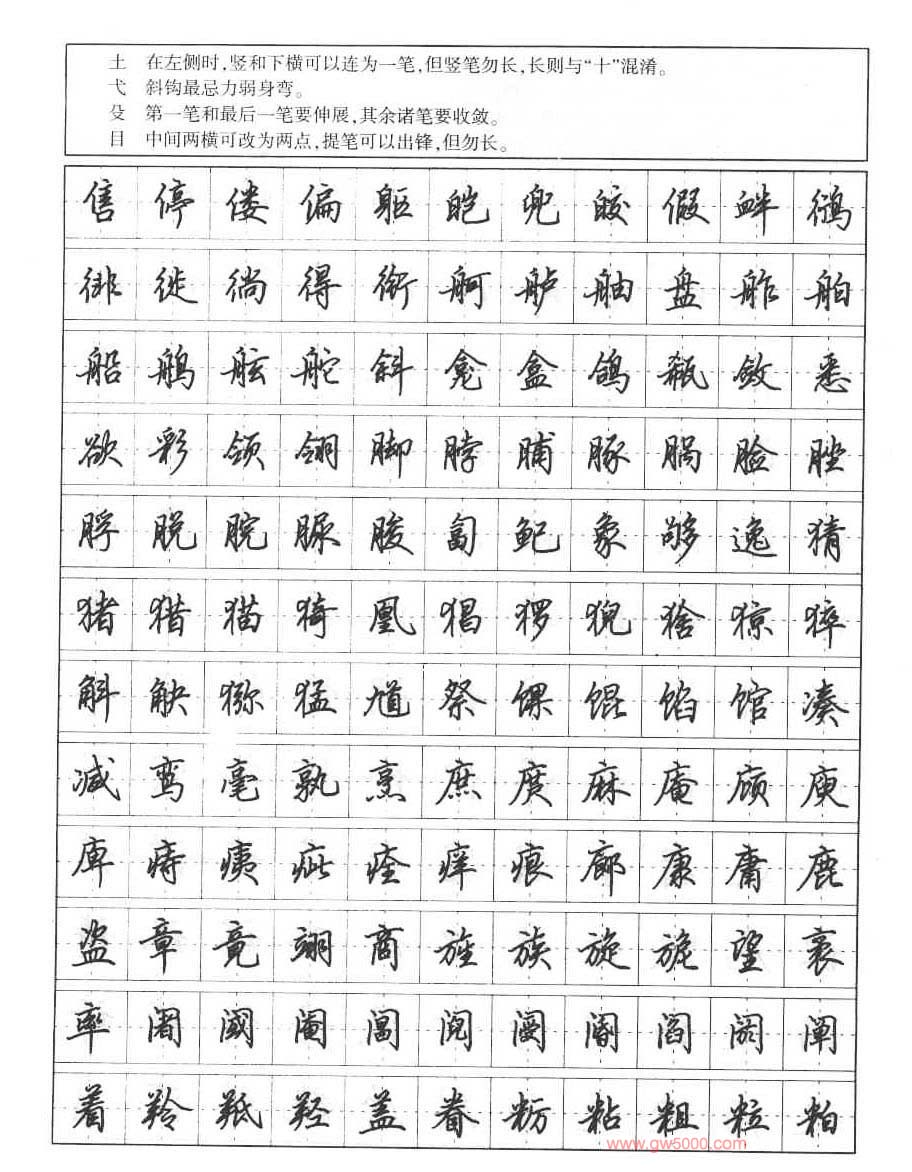 土 在左侧时,竖和下横可以连为一笔,但竖笔勿长,长则与“十”混淆。
弋 斜钩最忌力弱身弯。
殳 第一笔和最后一笔要伸展,其余诸笔要收敛。
目 中间两横可改为两点,提笔可以出锋,但勿长。
售 停 偻 偏 躯 皑 兜 皎 假 衅 鸻
徘 徙 徜 得 衔 舸 舻 舳 盘 舴 舶
船 鸼 舷 舵 斜 龛 盒 鸽 瓻 敛 悉
欲 彩 领 翎 脚 脖 脯 豚 脶 脸 脞
脬 脱 脘 脲 朘 匐 鱾 象 够 逸 猜
猪 猎 猫 猗 凰 猖 猡 猊 猞 猄 猝
斛 觖 猕 猛 馗 祭 馃 馄 馅 馆 凑
减 鸾 毫 孰 烹 庶 庹 麻 庵 庼 庾
庳 痔 痍 疵 痊 痒 痕 廊 康 庸 鹿
盗 章 竟 翊 商 旌 族 旋 旎 望 袤
率 阇 阈 阉 阊 阋 阌 阍 阎 阏 阐
着 羚 羝 羟 盖 眷 粝 粘 粗 粒 粕
www.gw5000.com